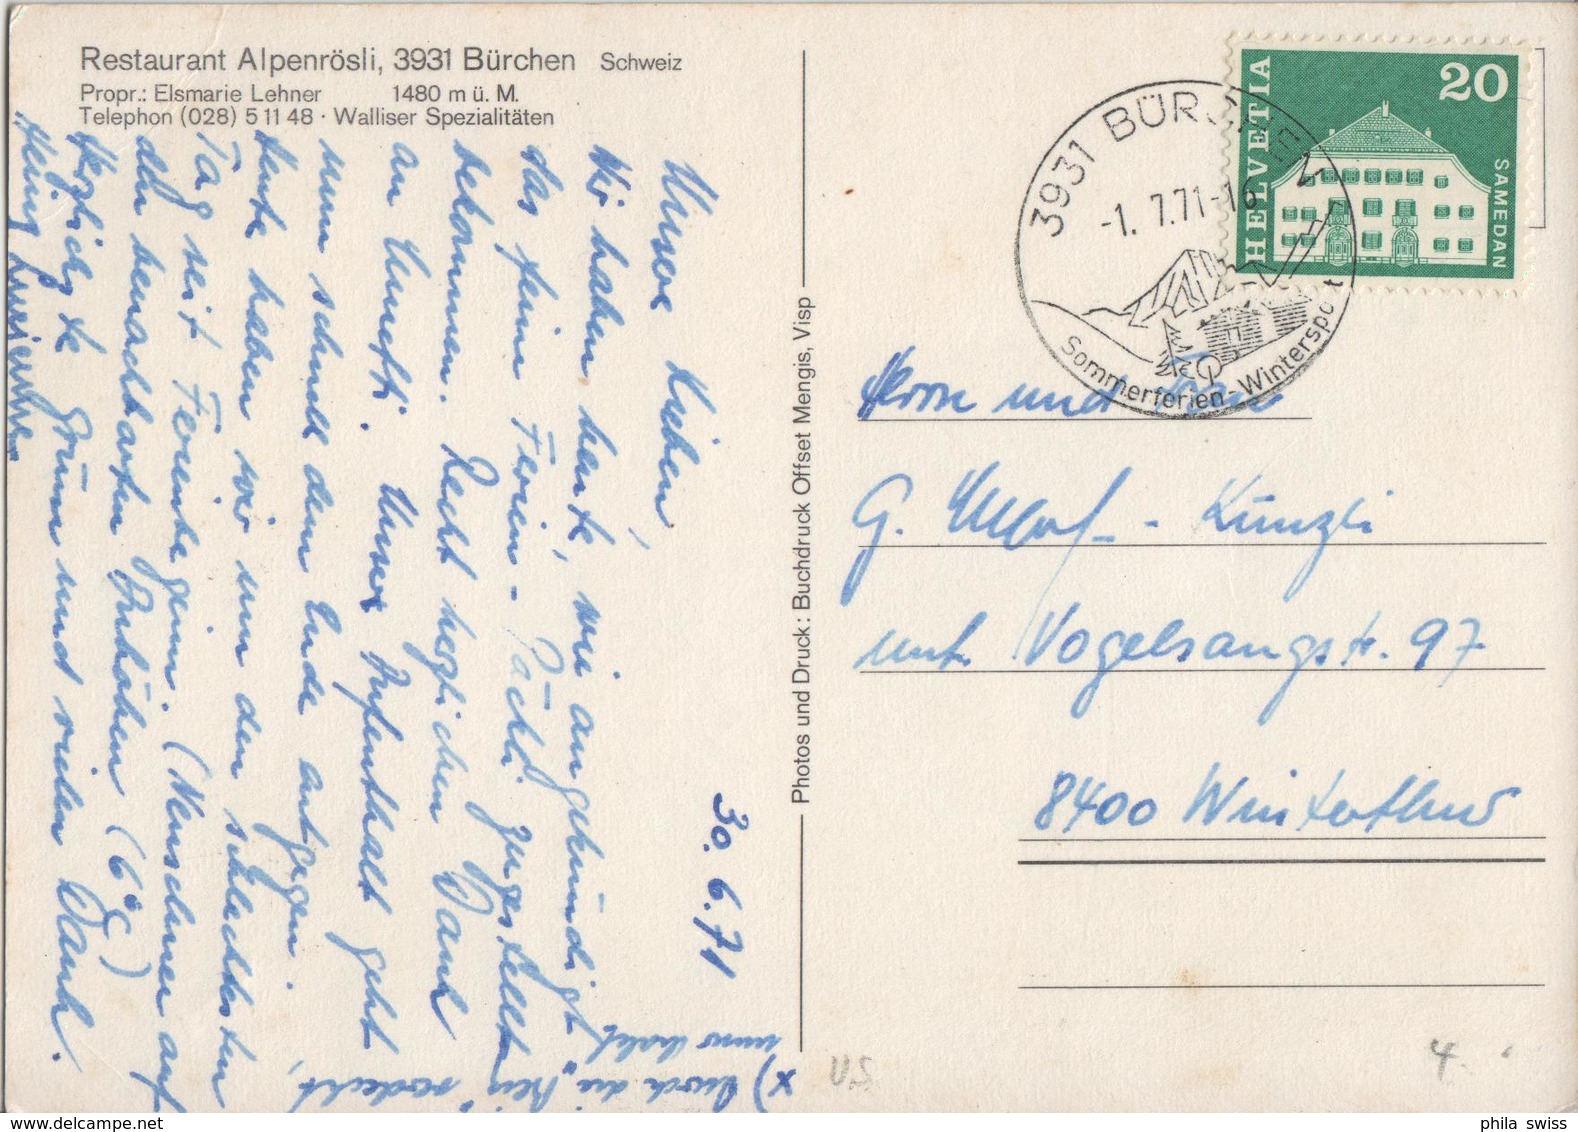 Restaurant Alpenrösli, 3931 Bürchen Schweiz
Propr.: Elsmarie Lehner 1480 m ü. M.
Telephon (028) 5 11 48 · Walliser Spezialitäten
30. 6. 71
Unsere Lieben,
Wir haben heute, wie angekündigt
das feine Ferien-Päckli zugestellt
bekommen. Recht herzlichen Dank
an Umelti. Unser Aufenthalt geht
nun schnell dem Ende entgegen.
Heute haben wir nun den schlechtesten
Tag seit Ferienbeginn. (Neuschnee auf
den benachbarten Anhöhen (6°C)
Herzliche Grüsse und vielen Dank.
Heinz
x) durch die
uns
Photos und Druck: Buchdruck Offset Mengis, Visp
3931 BÜRCHEN
-1. 7.71-16
Sommerferien-Wintersport
HELVETIA
20
SAMEDAN
Herrn und Frau
G. - Künzli
unt. Vogelsangstr. 97
8400 Winterthur
U.S.
4.
phila swiss